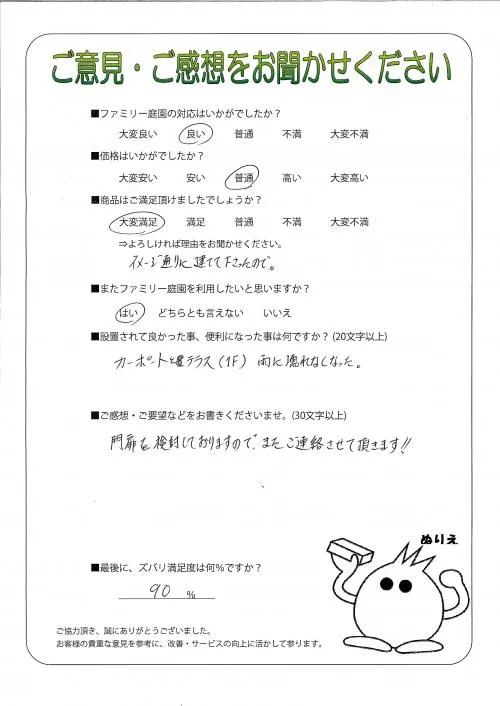 ご意見・ご感想をお聞かせください
■ファミリー庭園の対応はいかがでしたか?
大変良い 良い 普通 不満 大変不満
■価格はいかがでしたか?
大変安い 安い 普通 高い 大変高い
■商品はご満足頂けましたでしょうか?
大変満足 満足 普通 不満 大変不満
⇒よろしければ理由をお聞かせください。
イメージ通りに建てて下さったので。
■またファミリー庭園を利用したいと思いますか?
はい どちらとも言えない いいえ
■設置されて良かった事、便利になった事は何ですか?(20文字以上)
カーポートとテラス(1F) 雨に濡れなくなった。
■ご感想・ご要望などをお書きくださいませ。(30文字以上)
門扉を検討しておりますので、またご連絡させて頂きます!!
ぬりえ
■最後に、ズバリ満足度は何%ですか?
90 %
ご協力頂き、誠にありがとうございました。
お客様の貴重な意見を参考に、改善・サービスの向上に活かして参ります。